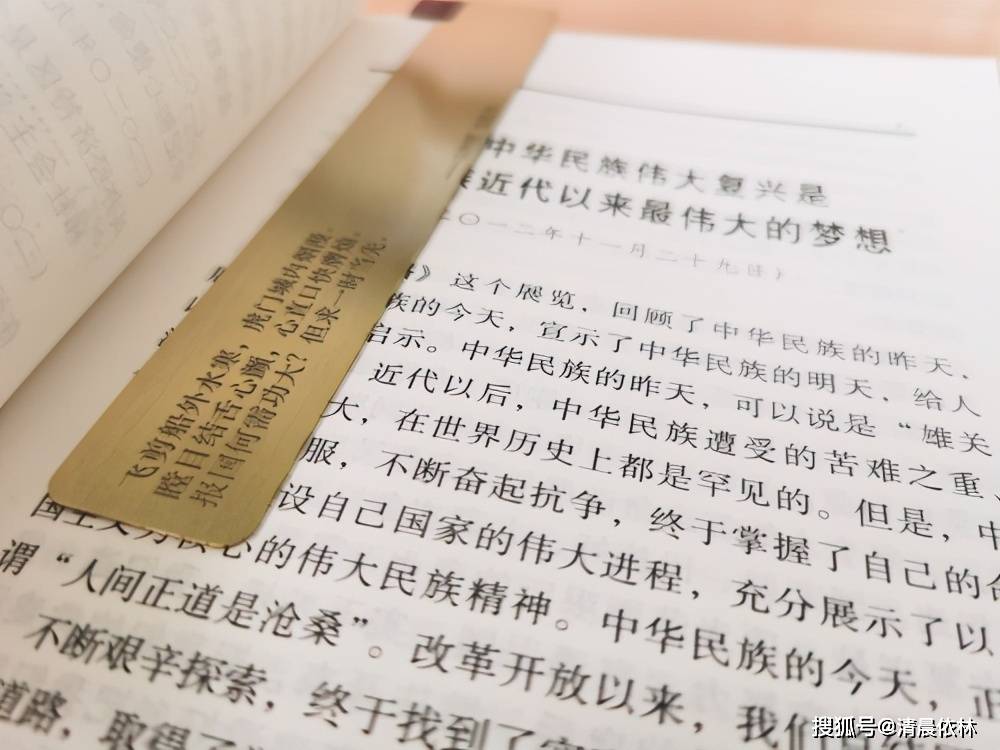 飞剪船外水寒，虎门城内烟
瞠目结舌心，心直口快
报国何需功大？但求一时当先。
中华民族伟大复兴是
近代以来最伟大的梦想
二〇一二年十一月二十九日）
》这个展览，回顾了中华民族的昨天，
族的今天，宣示了中华民族的明天，给人
启示。中华民族的昨天，可以说是“雄关
近代以后，中华民族遭受的苦难之重、
大，在世界历史上都是罕见的。但是，中
服，不断奋起抗争，终于掌握了自己的命
设自己国家的伟大进程，充分展示了以
国主义为核心的伟大民族精神。中华民族的今天，正
谓“人间正道是沧桑”。改革开放以来，我们
不断艰辛探索，终于找到了实
道路，取得了
搜狐号@清晨依林